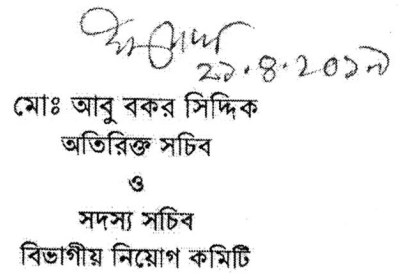 ২১.৪.২০১৭
মোঃ আবু বকর সিদ্দিক
অতিরিক্ত সচিব
ও
সদস্য সচিব
বিভাগীয় নিয়োগ কমিটি